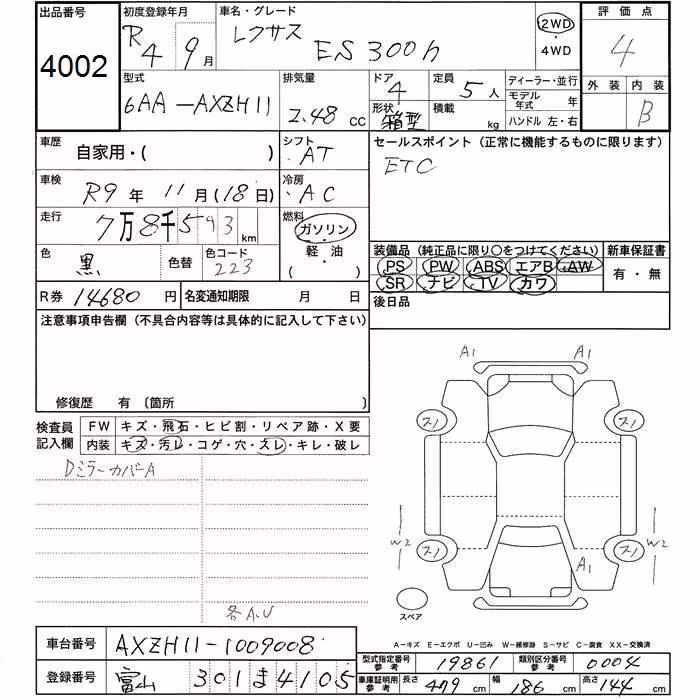 出品番号 初度登録年月 車名・グレード 2WD 評価点
4002 R4 9月 レクサス ES300h ・4WD 4
型式 排気量 ドア 定員 ディーラー・並行 外装 内装
6AA-AXZH11 2.48cc 4 5人 モデル年式 年 B
形状 箱型 積載 kg ハンドル 左・右
車歴 自家用・( ) シフト ・AT セールスポイント(正常に機能するものに限ります)
ETC
車検 R9年11月(18日) 冷房 ・AC
走行 7万8千593km 燃料 ガソリン・軽・油( )
装備品(純正品に限り○をつけてください) 新車保証書
色 黒 色替 色コード 223
PS PW ABS エアB AW 有・無
SR ナビ TV カワ
R券 14680円 名変通知期限 月 日 後日品
注意事項申告欄(不具合内容等は具体的に記入して下さい)
修復歴 有 〔箇所 〕
検査員記入欄 FW キズ・飛石・ヒビ割・リペア跡・X要
内装 キズ・汚レ・コゲ・穴・スレ・キレ・破レ
Dミラーカバー A
各A.U
A1 A1
スノ スノ
W2 W2
スノ スノ
A1
スペア
A-キズ E-エクボ U-凹み W-補修跡 S-サビ C-腐食 XX-交換済
車台番号 AXZH11-1009008
型式指定番号参考 19861 類別区分番号参考 0004
登録番号 富山 301 ま 4105
車庫証明用参考 長さ 479cm 幅 186cm 高さ 144cm